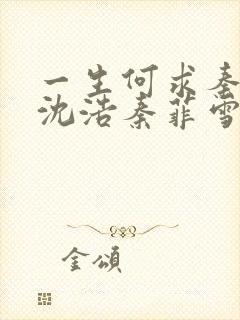 一生何求秦
沈浩秦菲雪
金頌